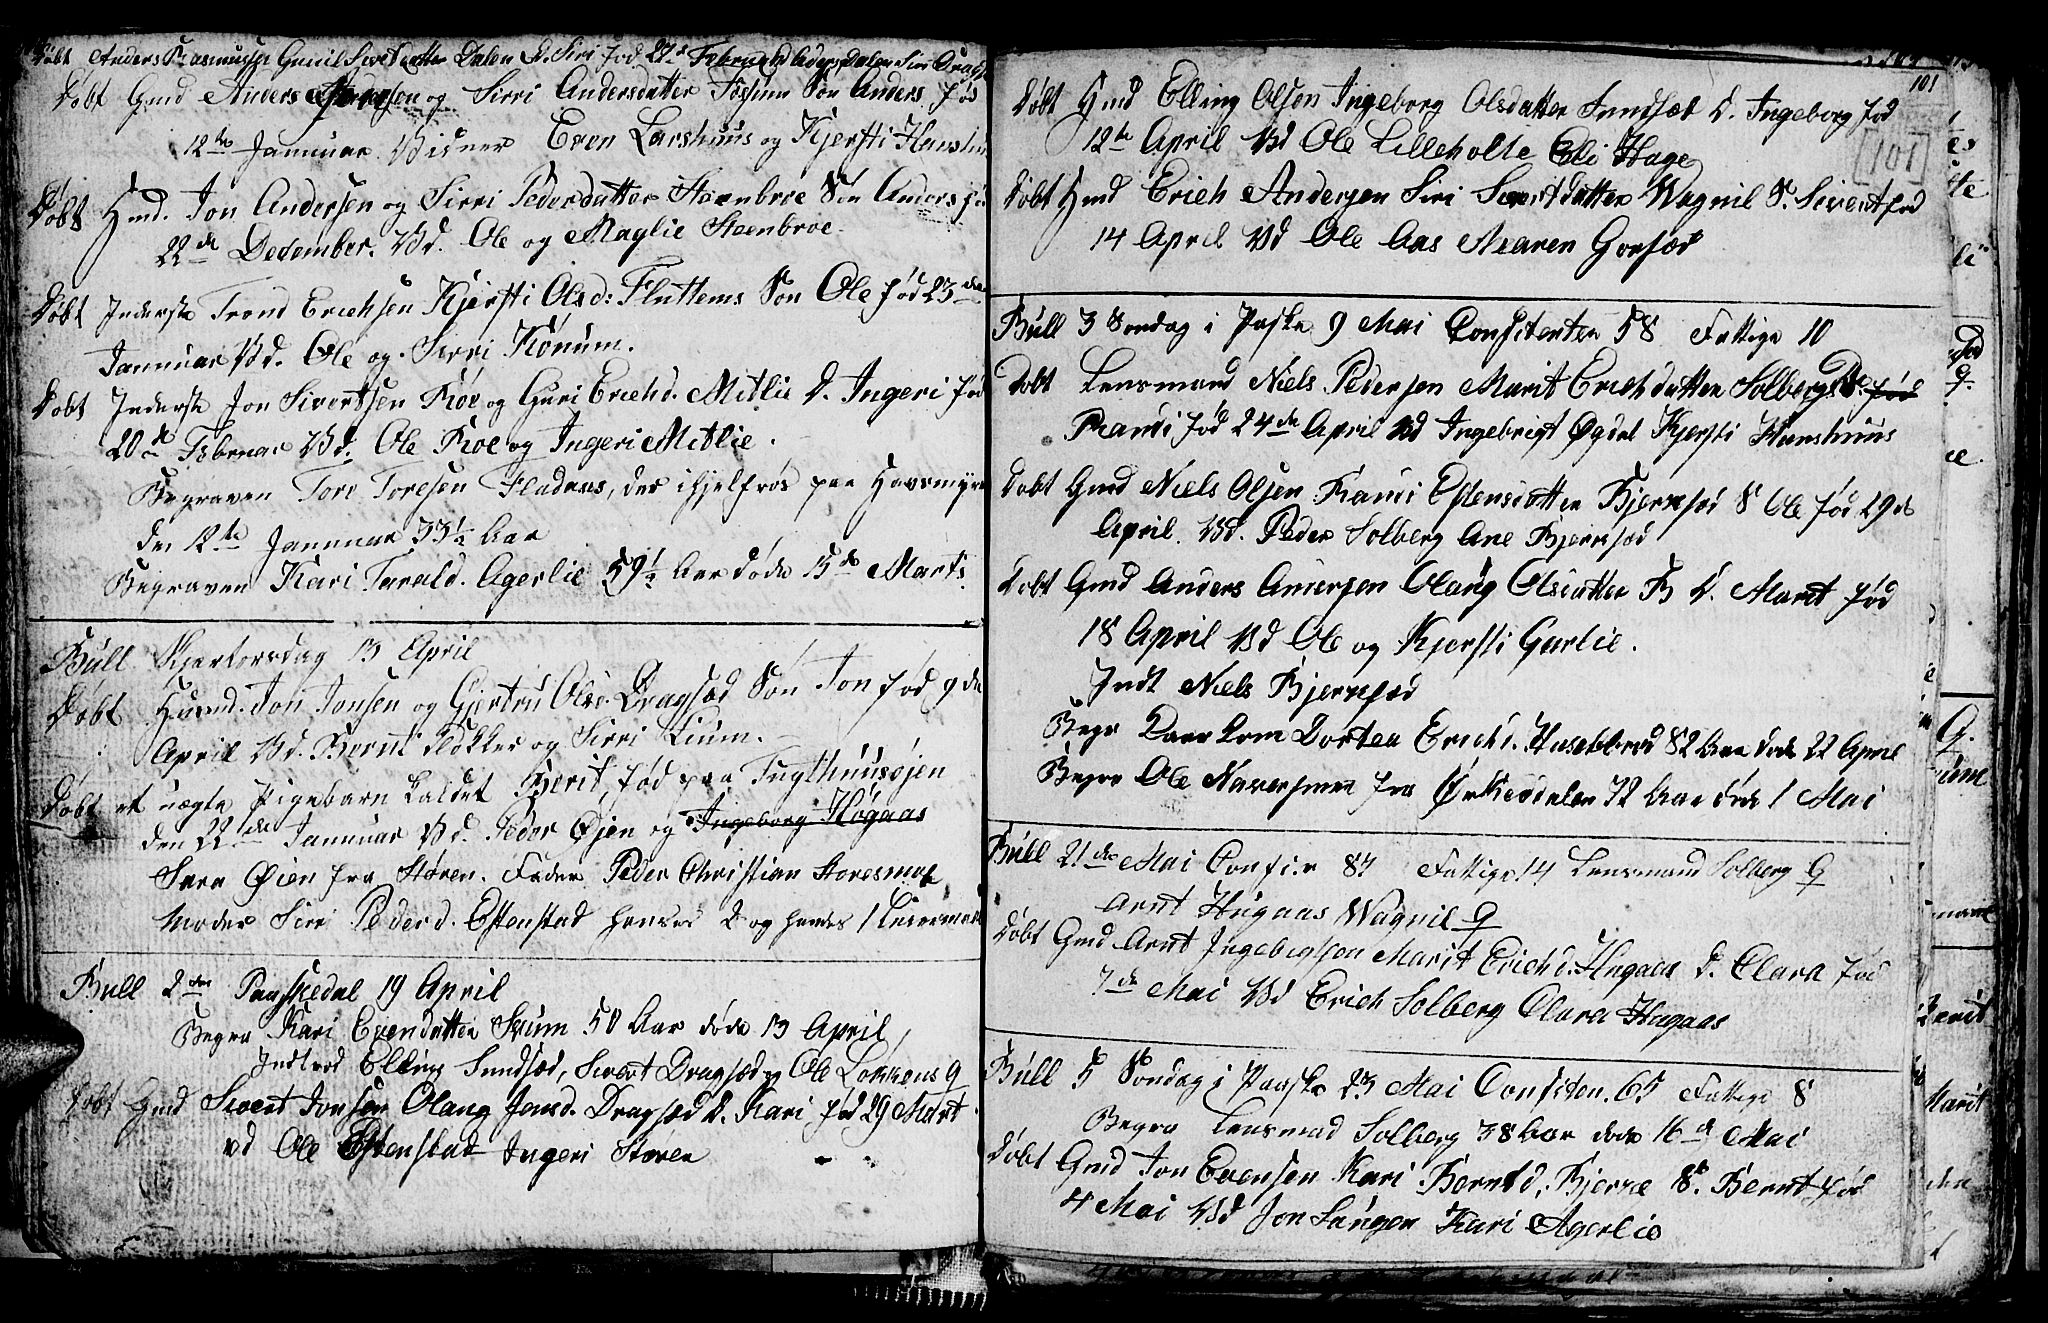 Døbt Anders Rasmussen Gunil Sivertdatter Dalen D. Siri fød 22de Februar
Døbt Gmd Anders og Sirri Andersdatter Fossum Søn Anders fød
12te Januar. Vidner Even Larshuus og Kjersti
Døbt Hmd. Jon Andersen og Sirri Pedersdatter Steenbroe Søn Anders fød
22de December. Vd. Ole og Maglie Steenbroe
Døbt Inderste Trond Erichsen Kjersti Olsd: Fluttems Søn Ole fød 23de
Januar Vd. Ole og Sirri Kønum.
Døbt Inderste Jon Sivertsen Roe og Guri Erichd. Mitlie D. Ingeri fød
20de Februar Vd. Ole Roe og Ingeri Mitlie.
Begraven Tore Toresen Fladaas, der ihjelfrøs paa Havsmyra
den 12te Januar 33½ Aar
Begraven Kari Tarald. Agerlie 59½ Aar døde 15de Marts.
Bull Skjertorsdag 13 April
Døbt Huusmd. Jon Jonsen og Gjertru Olsd. Dragsæd Søn Jon fød 9de
April Vd. Bernt Klokker og Sirri Lium.
Døbt et uægte Pigebarn kaldet Berit, fød paa Tugthuusøjen
den 22de Januar Vd. Peder Øjen og Ingeborg Høgaas
Sara Øien fra Støren. Fader Peder Christian Storesmoe
Moder Sirri Pederd. Estenstad hanses 2 og hendes 1 Leiermaal
Bull 2den Paaskedal 19 April
Begra Kari Evendatter Krum 50 Aar døde 13 April
Indtræd Elling Sundsæd, Sivert Dragsæd og Ole Løkkens Q
Døbt Gmd Sivert Jonsen Olaug Jonsd. Dragsæd D. Kari fød 29 Mart
vd Ole Estenstad Ingeri Støren
101
[101]
Døbt Hmd Elling Olsen Ingeborg Olsdatter Sundsæt D. Ingeborg fød
12te April Vd Ole Lilleholte Eli Hage
Døbt Hmd Erich Andersen Siri Sivertdatter Wagnil S. Sivert fød
14 April Vd Ole Aas Maren Gorsæd
Bull 3 Søndag i Paske 9 Mai Confitenter 58 Fattige 10
Døbt Lensmand Niels Pedersen Marit Erichdatter Solberg D. fød
Randi fød 24de April Vd Ingebrigt Øgdal Kjersti Hanshuus
Døbt Gmd Niels Olsen Randi Estensdatter Bjernsød S Ole fød 29de
April. Vd. Peder Solberg Ane Bjernsæd
Døbt Gmd Anders Andersen Olaug Olsdatter B D. Marit fød
18 April Vd Ole og Kjersti Garlie.
Indt Niels Bjernsæd
Begr Dorten Erichd. Husebbrød 82 Aar døde 22 April
Begra Ole fra Ørkedalen 72 Aar døde 1 Mai
Bull 21de Mai Confi:r 87 Fattige 14 Lensmand Solberg Q
Arnt Hugaas Wagnil Q
Døbt Gmd Arnt Ingebrigtsøn Marit Erichd. Hugaas D. Clara fød
7de Mai Vd Erich Solberg Clara Hugaas
Bull 5 Søndag i Paaske 23 Mai Confiten. 65 Fattige 8
Begra Lensmad Solberg 38 Aar døde 16de Mai
Døbt Gmd Jon Evensen Kari Berntd. Bjerke S. Bernt fød
4 Mai Vd Jon Langen Kari Agerlie